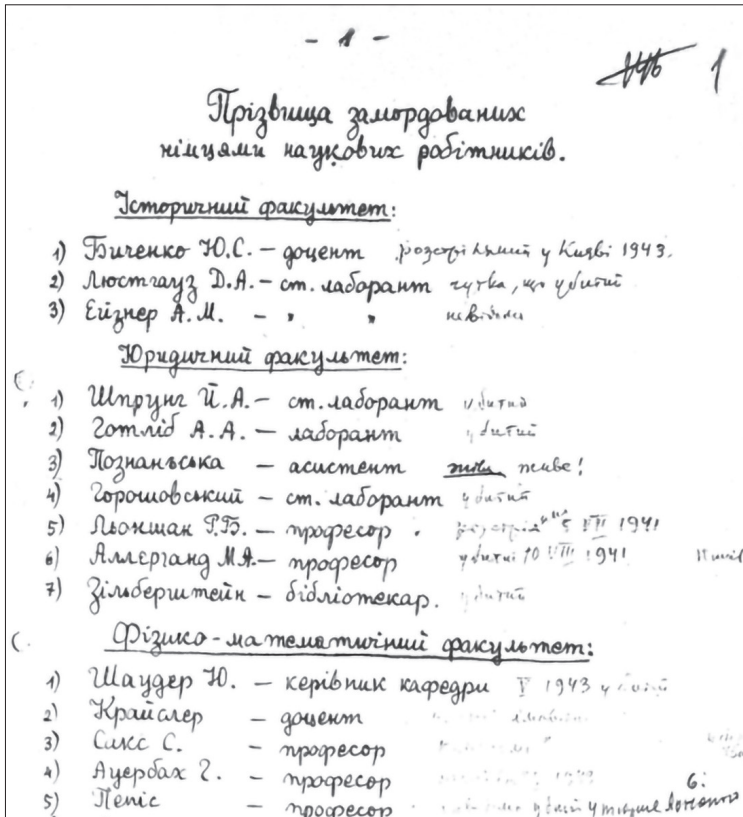 - 1 -
1
Прізвища замордованих
німцями наукових робітників.
Історичний факультет:
1) Биченко Ю.С. – доцент розстріляний у Києві 1943.
2) Люстгауз Д.А. – ст. лаборант чутка, що убитий
3) Ейзнер А.М. – " "
Юридичний факультет:
1) Шпрунг Й.А. – ст. лаборант убитий
2) Готліб А.А. – лаборант убитий
3) Познаньська – асистент живе!
4) Горошовський – ст. лаборант убитий
5) Льоншан Р.Б. – професор 1941
6) Аллерганд М.А. – професор убитий 10 VIII 1941
7) Зільберштейн – бібліотекар. убитий
Фізико-математичний факультет:
1) Шаудер Ю. – керівник кафедри V 1943 убитий
2) Крайслер – доцент
3) Сакс С. – професор
4) Ауербах Г. – професор
5) Пепіс – професор